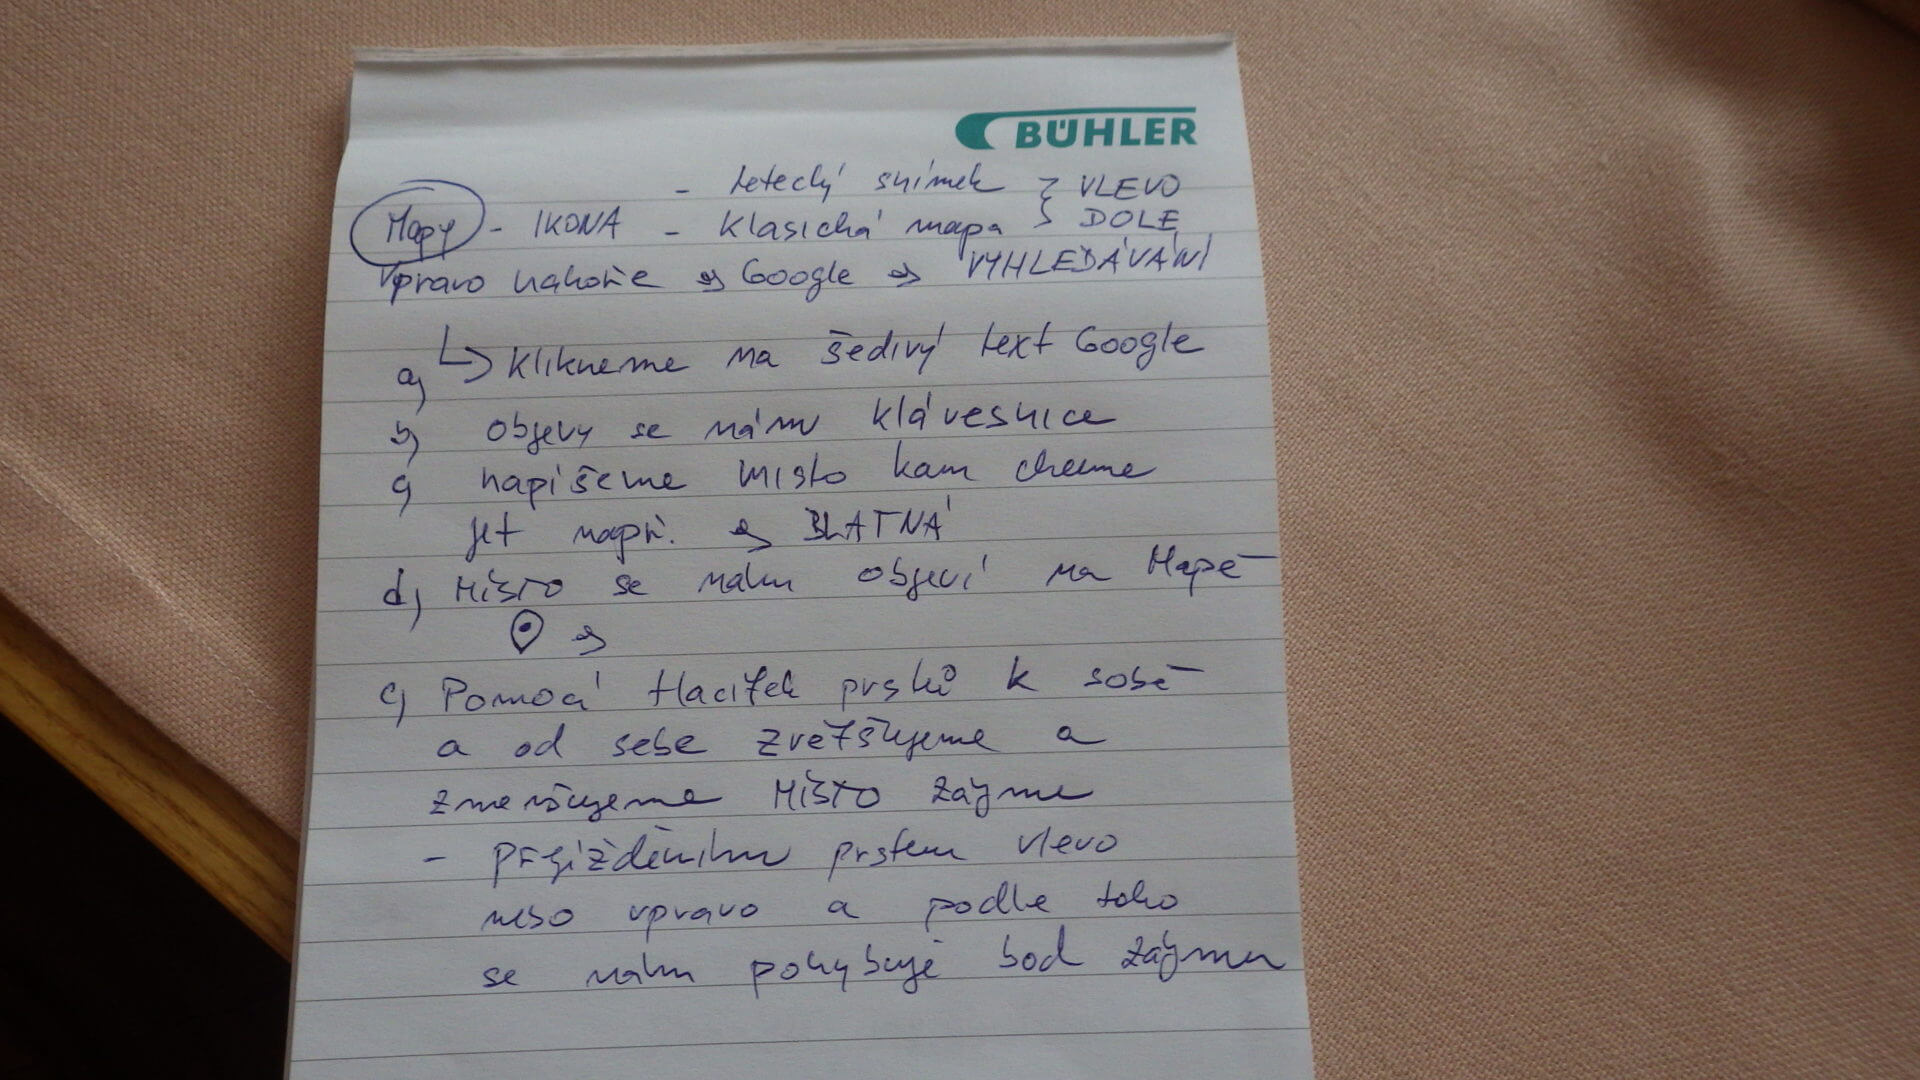 BÜHLER
- letecký snímek } VLEVO
Mapy - IKONA - klasická mapa } DOLE
Vpravo nahoře → Google → VYHLEDÁVÁNÍ
a) ↳ klikneme na šedivý text Google
b) objevy se nám klávesnice
c) napišeme misto kam chceme
jet např. → BLATNÁ
d) MÍSTO se nám objeví na Mapě
→
Pomocí prstů k sobě
a od sebe zvětšujeme a
zmenšujeme MÍSTO zájmu
- prstem vlevo
nebo vpravo a podle toho
se nám pohybuje bod zájmu